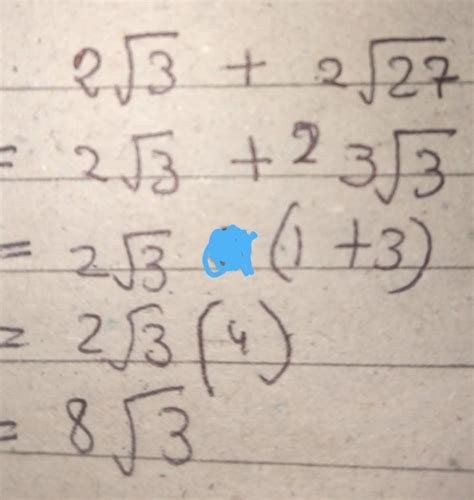 2√3 + 2√27
= 2√3 + 2 3√3
= 2√3 (1 + 3)
= 2√3 (4)
= 8√3